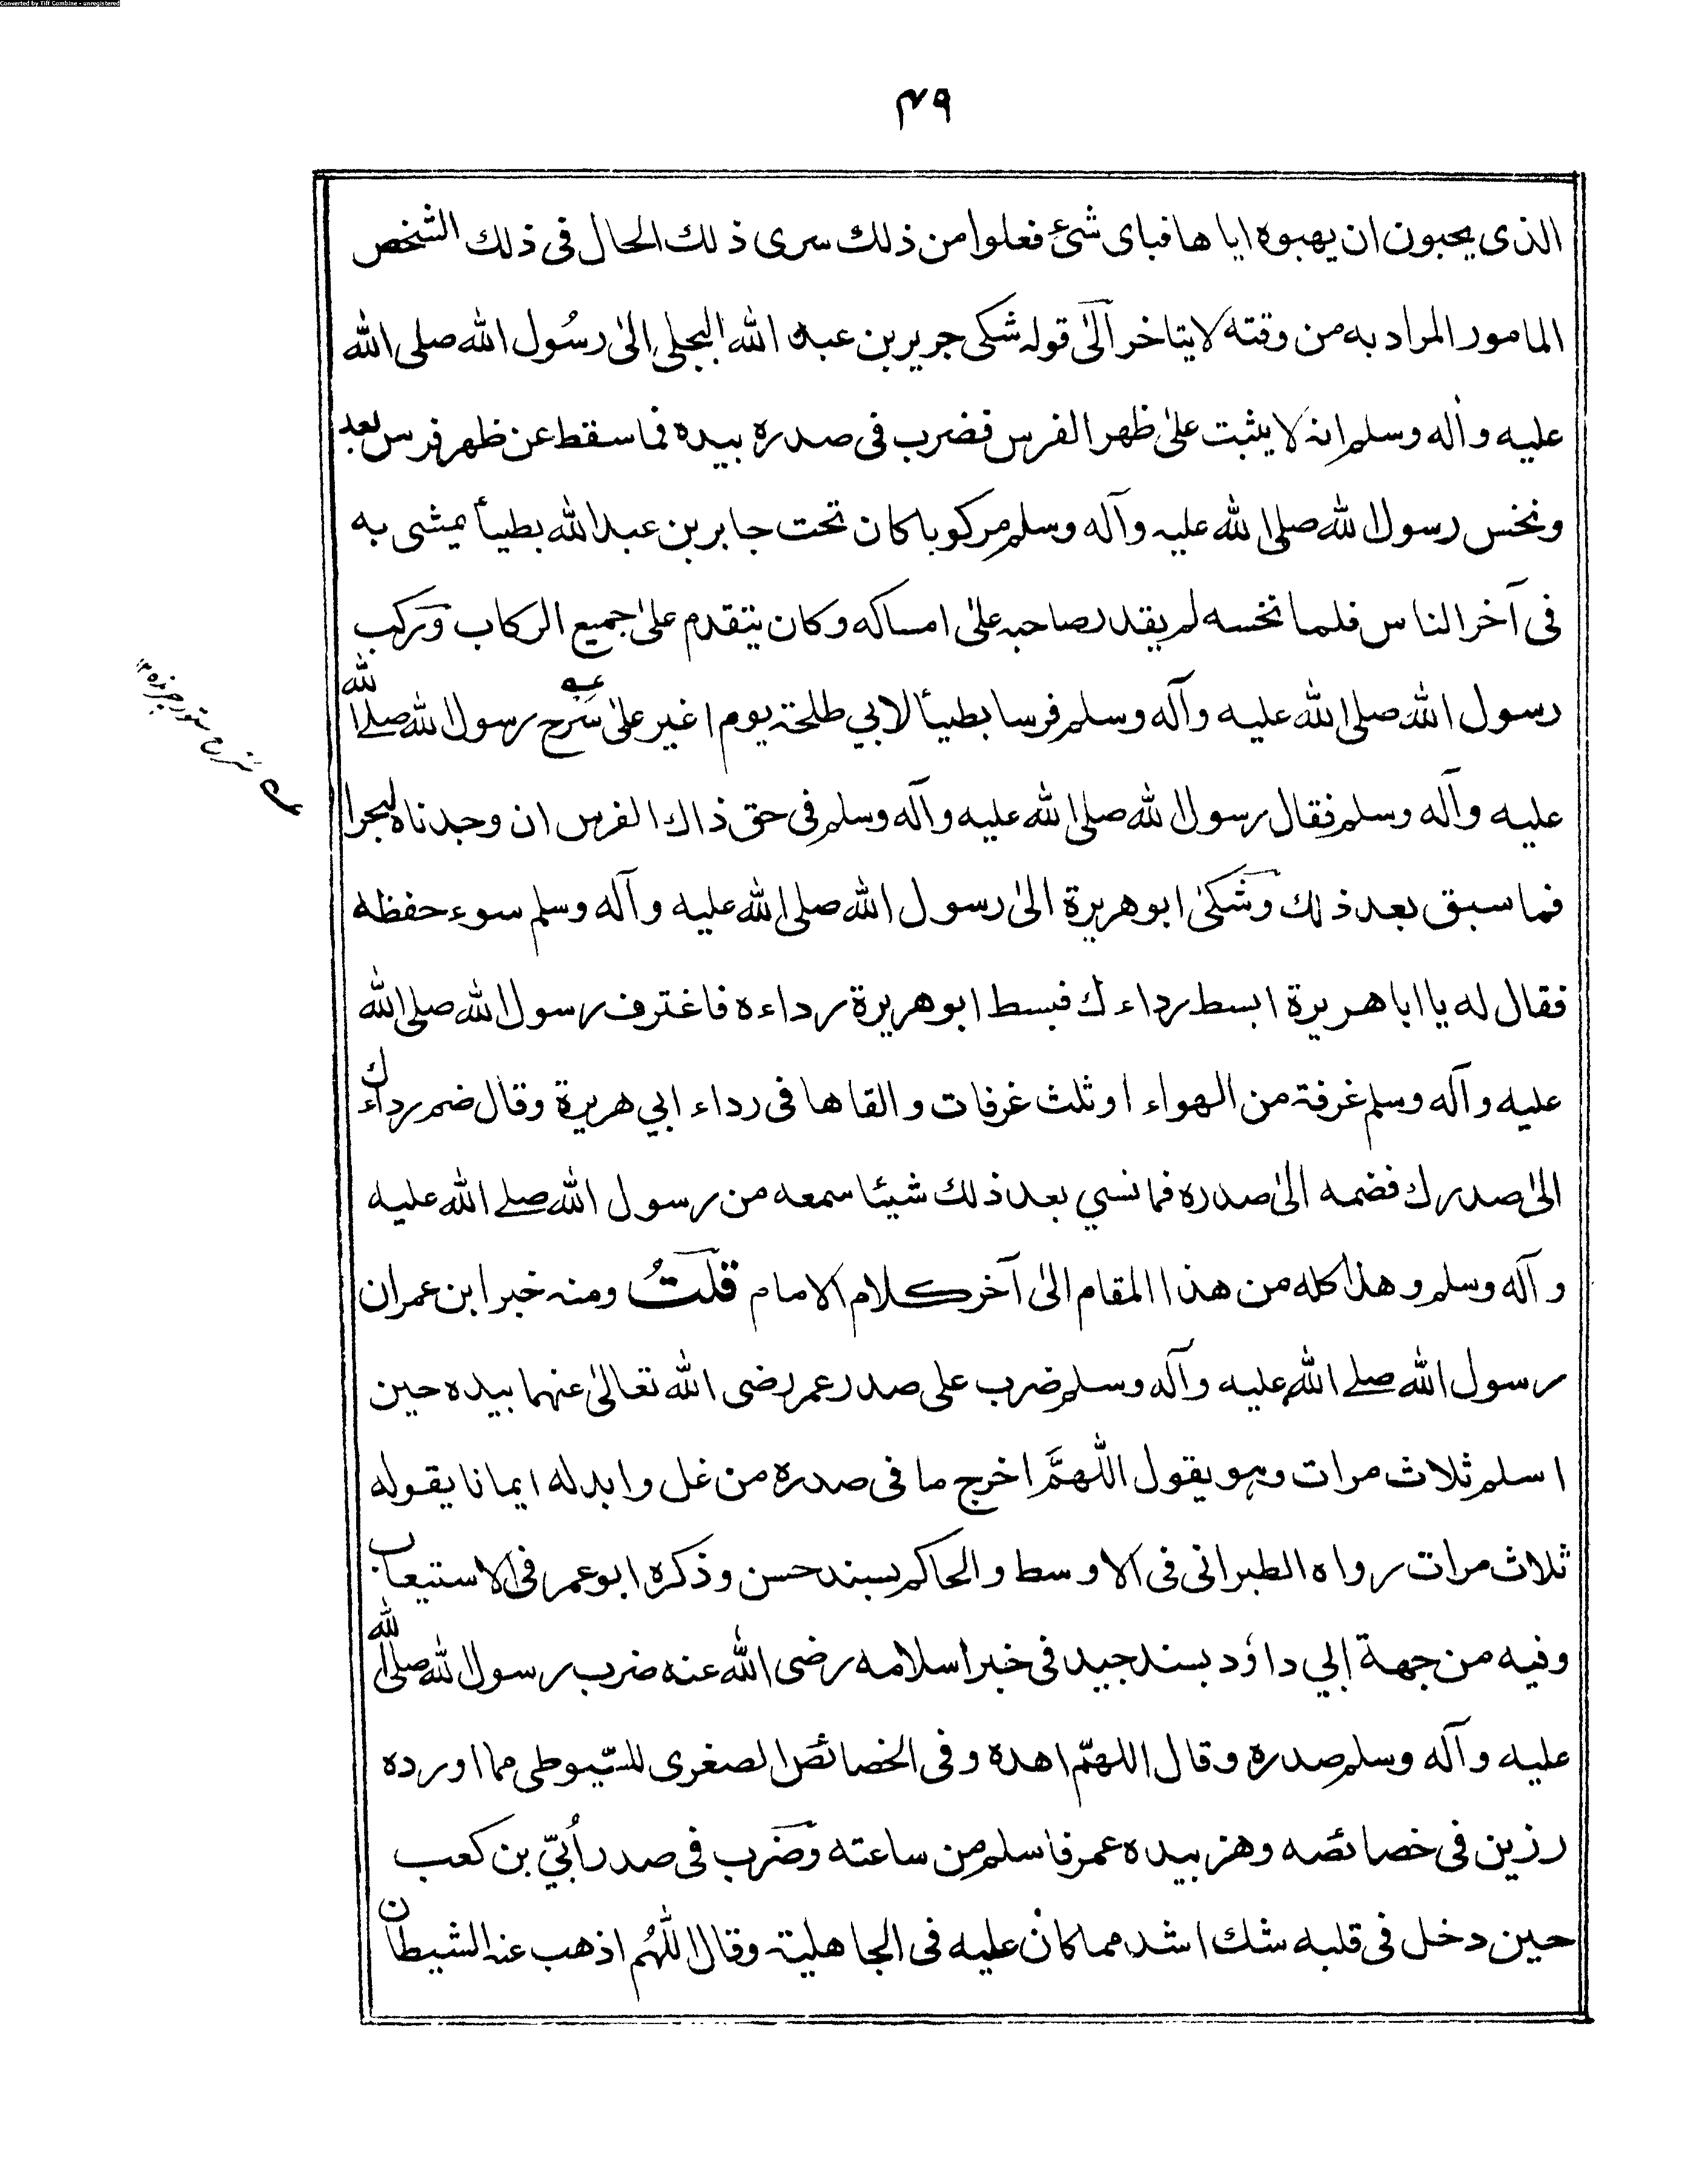 Converted by Tiff Combine - unregistered
۴۹
الذى يحبون ان يهبوه اياها فباى شئ فعلوا من ذلك سرى ذلك الحال فى ذلك الشخص
المامور المراد به من وقته لا يتاخر الىٰ قوله شكى جرير بن عبد الله البجلى الىٰ رسُول الله صلى الله
عليه وأله وسلم انه لا يثبت علىٰ ظهر الفرس فضرب فى صدره بيده فما سقط عن ظهر فرس بعد
ونخس رسول الله صلى الله عليه وآله وسلم مركوبا كان تحت جابر بن عبد الله بطيأ يمشى به
فى آخر الناس فلما نخسه لم يقدر صاحبه علىٰ امساكه وكان يتقدم علىٰ جميع الركاب وركب
رسول الله صلى الله عليه وآله وسلم فرسا بطيأ لابي طلحة يوم اغير علىٰ سَرح رسول الله صلى الله
عليه وآله وسلم فقال رسول الله صلى الله عليه وآله وسلم فى حق ذاك الفرس ان وجدناه لبحرا
فما سبق بعد ذلك وشكىٰ ابوهريرة الىٰ رسول الله صلى الله عليه وآله وسلم سوء حفظه
فقال له يا اباهريرة ابسط رداءك فبسط ابوهريرة رداءه فاغترف رسول الله صلى الله
عليه وآله وسلم غرفة من الهواء او ثلث غرفات والقاها فى رداء ابي هريرة وقال ضم رداءك
الىٰ صدرك فضمه الىٰ صدره فما نسي بعد ذلك شيئا سمعه من رسول الله صلے الله عليه
وآله وسلم وهذا كله من هذا المقام الىٰ آخر كلام الامام قلتُ ومنه خبر ابن عمر ان
رسول الله صلے الله عليه وآله وسلم ضرب على صدر عمر رضى الله تعالىٰ عنهما بيده حين
اسلم ثلاث مرات وهو يقول اللّٰهمَّ اخرج ما فى صدره من غل وابدله ايمانا يقوله
ثلاث مرات رواه الطبرانى فى الاوسط والحاكم بسند حسن وذكره ابوعمر فى الاستيعاب
وفيه من جهة ابي داؤد بسند جيد فى خبر اسلامه رضى الله عنه ضرب رسول الله صلى الله
عليه وآله وسلم صدره وقال اللهمّ اهده وفى الخصائص الصغرى للسّيوطى مما اورده
رزين فى خصائصه وهز بيده عمر فاسلم من ساعته وضرب فى صدر أُبيّ بن كعب
حين دخل فى قلبه شك اشد مما كان عليه فى الجاهلية وقال اللّٰهُم اذهب عنه الشيطان